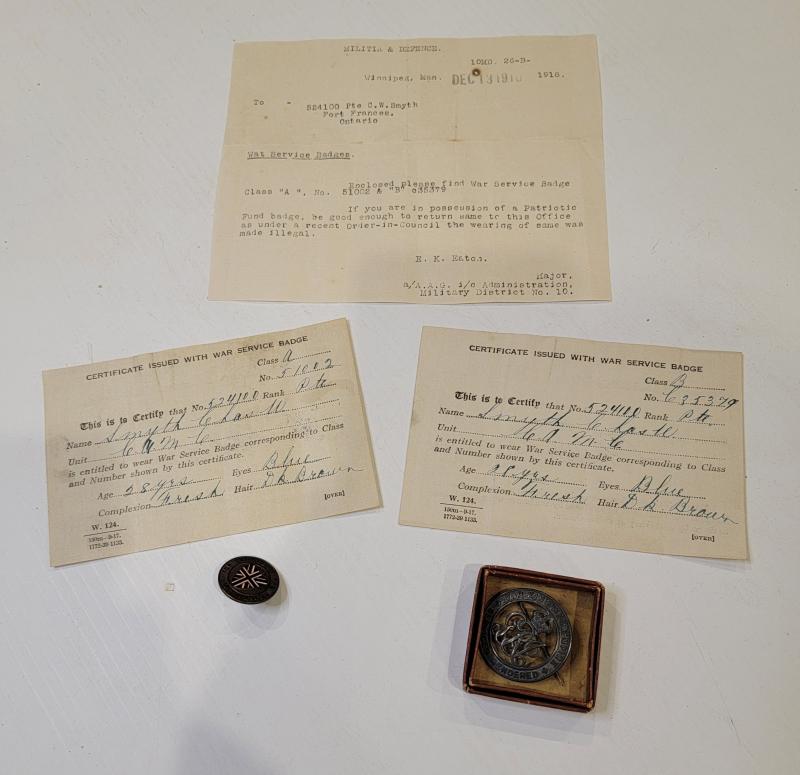 MILITIA & DEFENCE.
10MD. 26-B-
Winnipeg, Man. DEC 13 1918 1918.
To - 524100 Pte C.W.Smyth
Fort Frances,
Ontario
Wat Service Badges.
Enclosed please find War Service Badge
Class "A ", No. 51002 & "B" c35379
If you are in possession of a Patriotic
Fund badge, be good enough to return same to this Office
as under a recent Order-in-Council the wearing of same was
made illegal.
E. K. Eaton.
Major,
a/A.A.G. i/c Administration,
Military District No. 10.
CERTIFICATE ISSUED WITH WAR SERVICE BADGE
Class A
No. 51002
This is to Certify that No. 524100 Rank Pte
Name Smyth Chas W
Unit C A M C
is entitled to wear War Service Badge corresponding to Class
and Number shown by this certificate.
Age 28 yrs Eyes Blue
Complexion Fresh Hair Dk Brown
W. 124.
150m-9-17.
1772-39 1135.
[OVER]
CERTIFICATE ISSUED WITH WAR SERVICE BADGE
Class B
No. C35379
This is to Certify that No. 524100 Rank Pte.
Name Smyth Chas W.
Unit C A M C
is entitled to wear War Service Badge corresponding to Class
and Number shown by this certificate.
Age 28 yrs Eyes Blue
Complexion Fresh Hair Dk Brown
W. 124.
150m-9-17.
1772-39 1135.
[OVER]